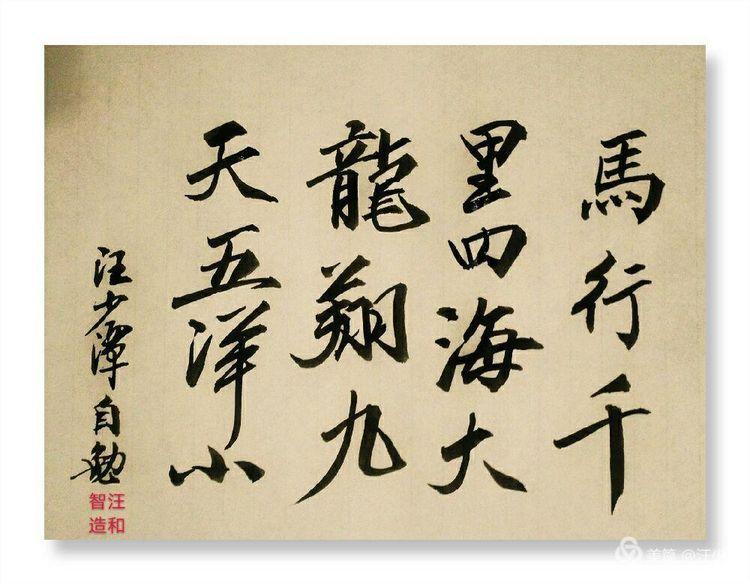 馬行千
里四海大
龍翔九
天五洋小
汪少潭自勉
汪和
智造
美篇 @汪小